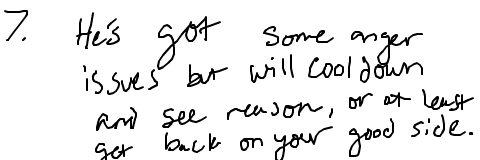 7. He's got some anger
issues but will cool down
and see reason, or at least
get back on your good side.